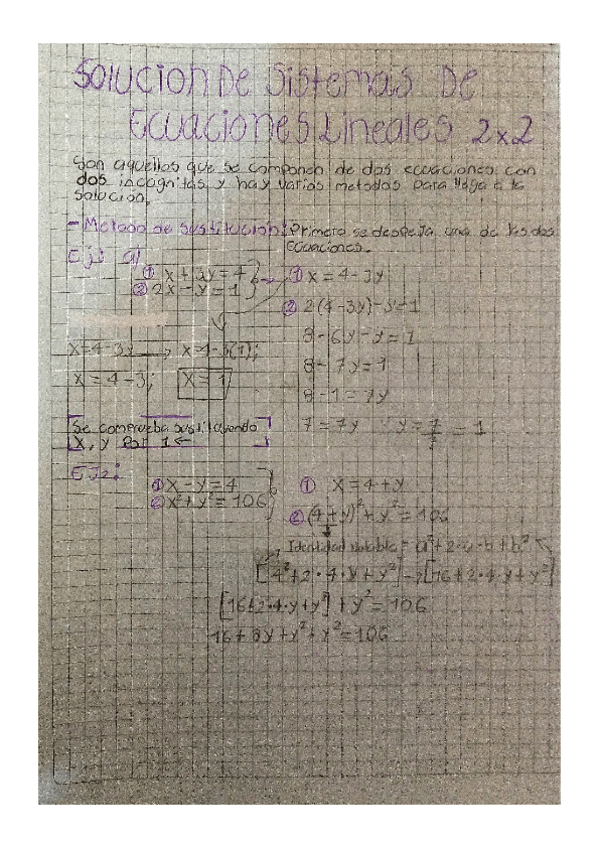 Solucion De Sistemas De
Ecuaciones Lineales 2x2
Son aquellos que se componen de dos ecuaciones con
dos incognitas y hay varios metodos para llega a la
solución.
- Metodo de sustitución: Primero se despeja una de las dos
Ecuaciones.
Ej: a)
① x + 3y = 4
② 2x - y = 1
① x = 4 - 3y
② 2(4-3y) - y = 1
8 - 6y - y = 1
8 - 7y = 1
8 - 1 = 7y
7 = 7y y = 7/7 = 1
x = 4 - 3y → x = 4 - 3(1);
x = 4 - 3; x = 1
Se comprueba sustituyendo
x, y Por 1 ←
EJ2:
① x - y = 4
② x² + y² = 106
① x = 4 + y
② (4 + y)² + y² = 106
Identidad notable = a² + 2·a·b + b²
[4² + 2·4·y + y²] → [16 + 2·4·y + y²]
[16 + 2·4·y + y²] + y² = 106
16 + 8y + y² + y² = 106